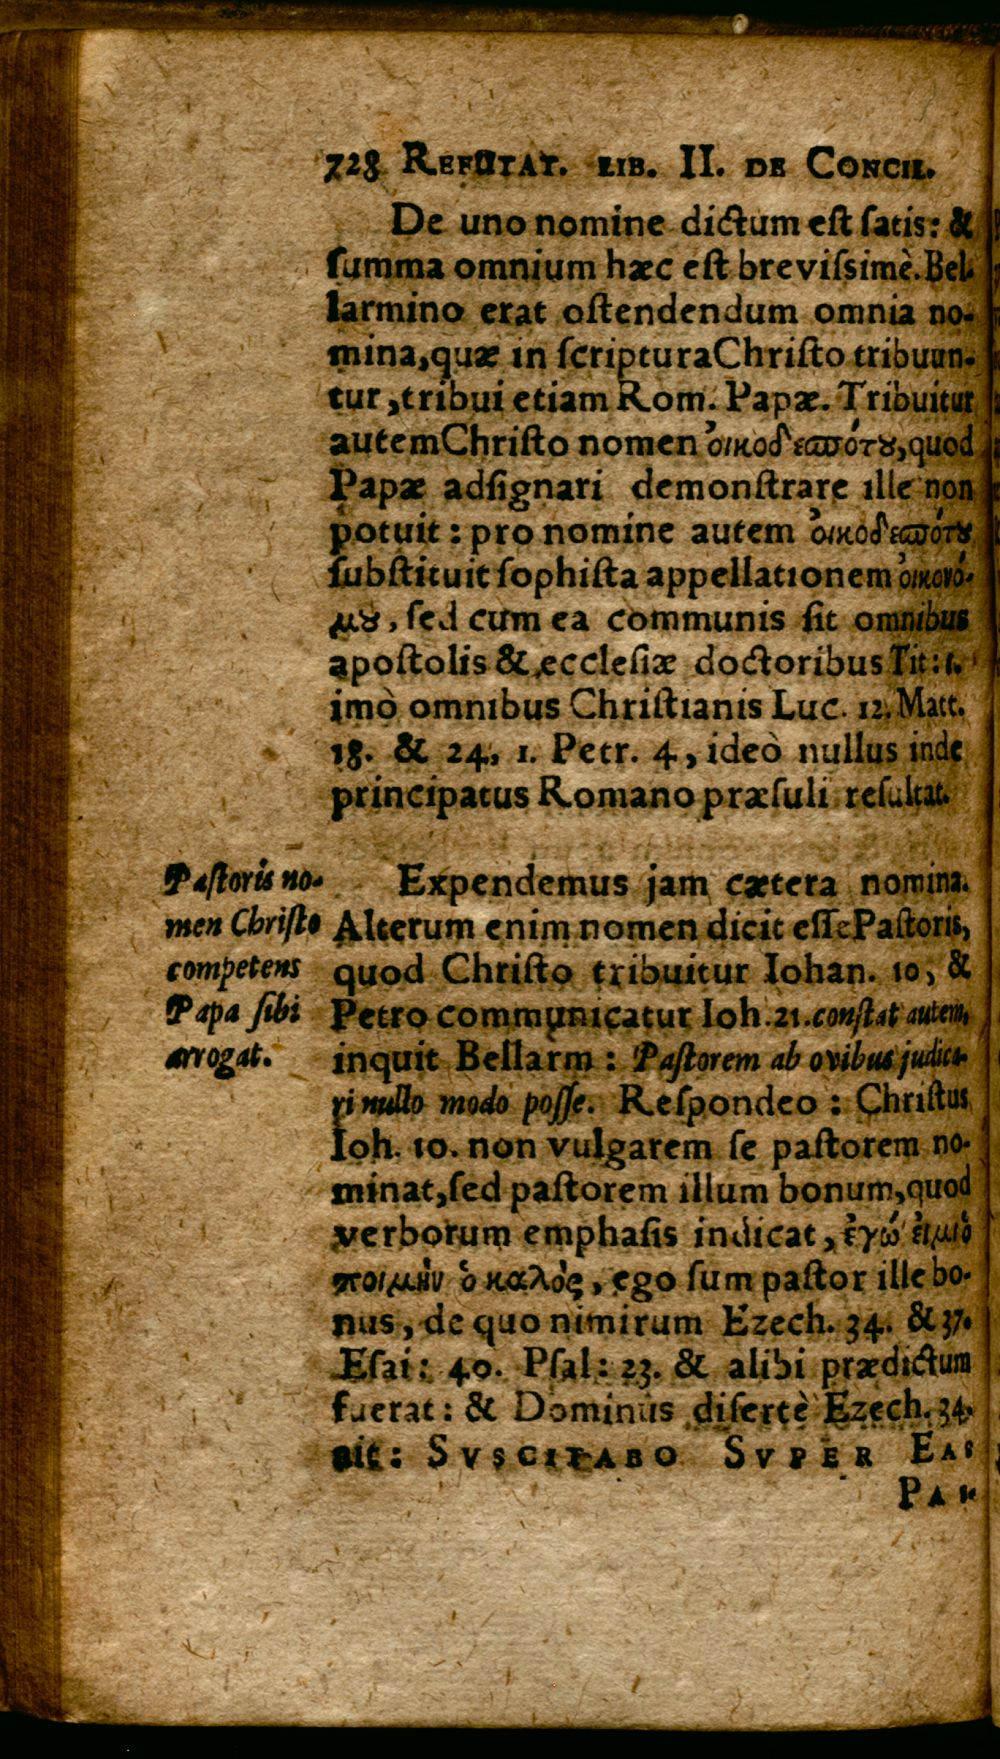 728 REFUTAT. LIB. II. DE CONCIL.
De uno nomine dictum est satis: &
summa omnium hæc est brevissimè. Bel-
larmino erat ostendendum omnia no-
mina, quæ in scriptura Christo tribuun-
tur, tribui etiam Rom. Papæ. Tribuitur
autem Christo nomen ὀικοδεσπότȣ, quod
Papæ adsignari demonstrare ille non
potuit: pro nomine autem ὀικοδεσπότȣ
substituit sophista appellationem ὀικονό-
μȣ, sed cum ea communis sit omnibus
apostolis & ecclesiæ doctoribus Tit: 1.
imò omnibus Christianis Luc. 12. Matt.
18. & 24, 1. Petr. 4, ideò nullus inde
principatus Romano præsuli resultat.
Pastoris no-
men Christo
competens
Papa sibi
arrogat.
Expendemus jam cætera nomina.
Alterum enim nomen dicit esse Pastoris,
quod Christo tribuitur Iohan. 10, &
Petro communicatur Ioh. 21. constat autem,
inquit Bellarm: Pastorem ab ovibus judica-
ri nullo modo posse. Respondeo: Christus
Ioh. 10. non vulgarem se pastorem no-
minat, sed pastorem illum bonum, quod
verborum emphasis indicat, ἐγώ ἐιμι ὁ
ποιμὴν ὁ καλὸς, ego sum pastor ille bo-
nus, de quo nimirum Ezech. 34. & 37.
Esai: 40. Psal: 23. & alibi prædictum
fuerat: & Dominus disertè Ezech. 34.
ait: SVSCITABO SVPER EAS
PAS-